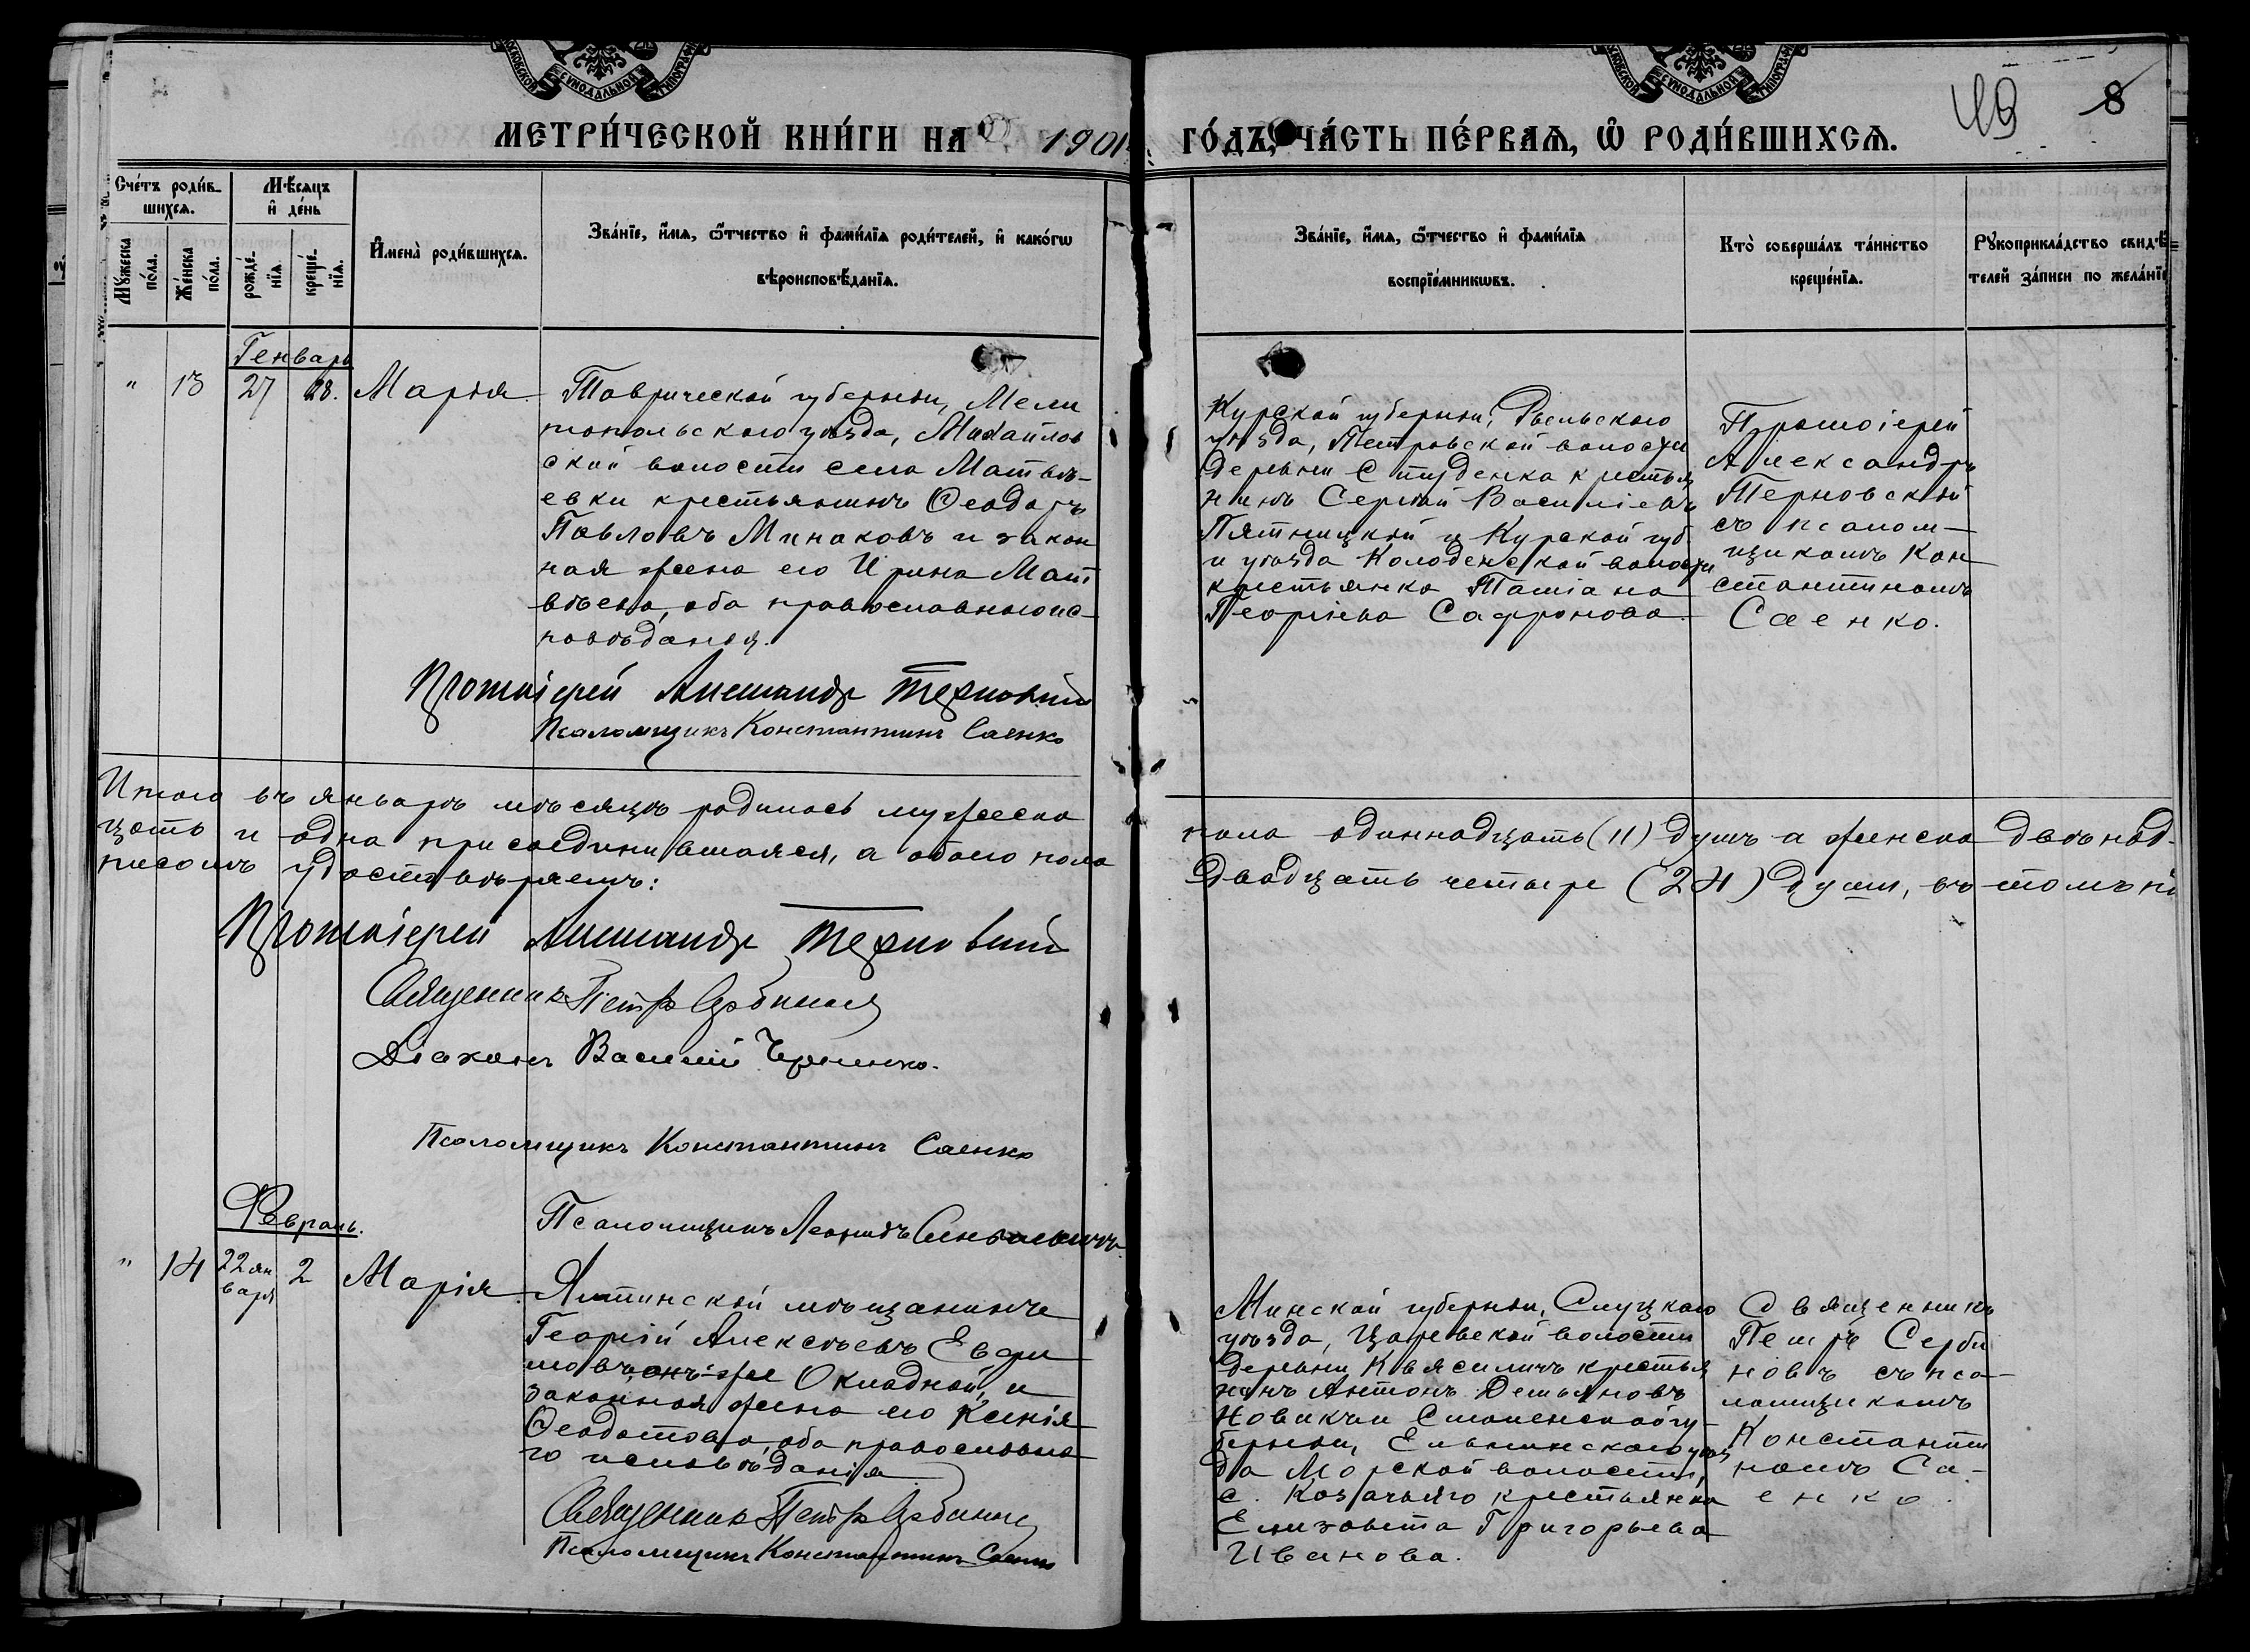 МОСКОВСКОЙ СѴНОДАЛЬНОЙ ТИПОГРАФ
МОСКОВСКОЙ СѴНОДАЛЬНОЙ ТИПОГРАФ
49 8
МЕТРИ́ЧЕСКОЙ КНИ́ГИ НА 1901
ГО́ДЪ, ЧА́СТЬ ПЕ́РВАѦ, Ѡ РОДИ́ВШИХСѦ.
Сче́тъ роди́в-
шихсѧ.
Мꙋжеска по́ла.
Же́нска по́ла.
Мѣ́сѧцъ
и҆ де́нь
рожде́-
нїѧ.
креще́-
нїѧ.
И҆мена̀ роди́вшихсѧ.
Зва́нїе, и҆́мѧ, ѻ҆́тчество и҆ фами́лїѧ роди́телей, и҆ како́гѡ
вѣроисповѣ́данїѧ.
Зва́нїе, и҆́мѧ, ѻ҆́тчество и҆ фами́лїѧ
воспрїе́мникѡвъ.
Кто̀ соверша́лъ та́инство
креще́нїѧ.
Рꙋкоприкла́дство свидѣ́-
телей за́писи по жела́нїю
Генварь
" 13 27 28. Марія
Таврической губерніи, Мели
топольскаго уѣзда, Михайлов
ской волости села Матвѣ-
евки крестьянинъ Ѳеодоръ
Павловъ Минаковъ и закон
ная жена его Ирина Мат
вѣева, оба православнаго ис-
повѣданія.
Протоіерей Александръ Терновскій
Псаломщикъ Константинъ Саенко
Курской губерніи, Рыльскаго
уѣзда, Петровской волости
деревни Студенка крестья
нинъ Сергѣй Василіевъ
Пятницкій и Курской губ.
и уѣзда Колоденской волости
крестьянка Татіана
Георгіева Сафронова
Протоіерей
Александръ
Терновскій
съ псалом-
щикомъ Кон
стантиномъ
Саенко.
Итого въ январѣ мѣсяцѣ родилось мужеска
пола одиннадцать (11) душъ а женска двѣнад-
цать и одна присоединившаяся, а обоего пола
двадцать четыре (24) души, въ томъ под
писомъ удостовѣряемъ:
Протоіерей Александръ Терновскій
Священникъ Петръ Сербиновъ
Діаконъ Василій
Псаломщикъ Константинъ Саенко
Псаломщикъ Леонидъ
Февраль.
" 14 22 ян
варя 2 Марія.
Ялтинскій мѣщанинъ
Георгій Алексѣевъ Евфи
мовъ, онъ-же Окладной, и
законная жена его Ксенія
Ѳеодотова, оба православна
го исповѣданія
Священникъ Петръ Сербиновъ
Псаломщикъ Константинъ Саенко
Минской губерніи, Слуцкаго
уѣзда, Царевской волости
деревни Квясиличъ крестья
нинъ Антонъ Демьяновъ
Новикъ и Смоленской гу-
берніи, Ельнинскаго уѣз
да Морской волости,
с. Козачьяго крестьянка
Елизавета Григорьева
Иванова.
Священникъ
Петръ Серби
новъ съ пса-
ломщикомъ
Константи
номъ Са-
енко.